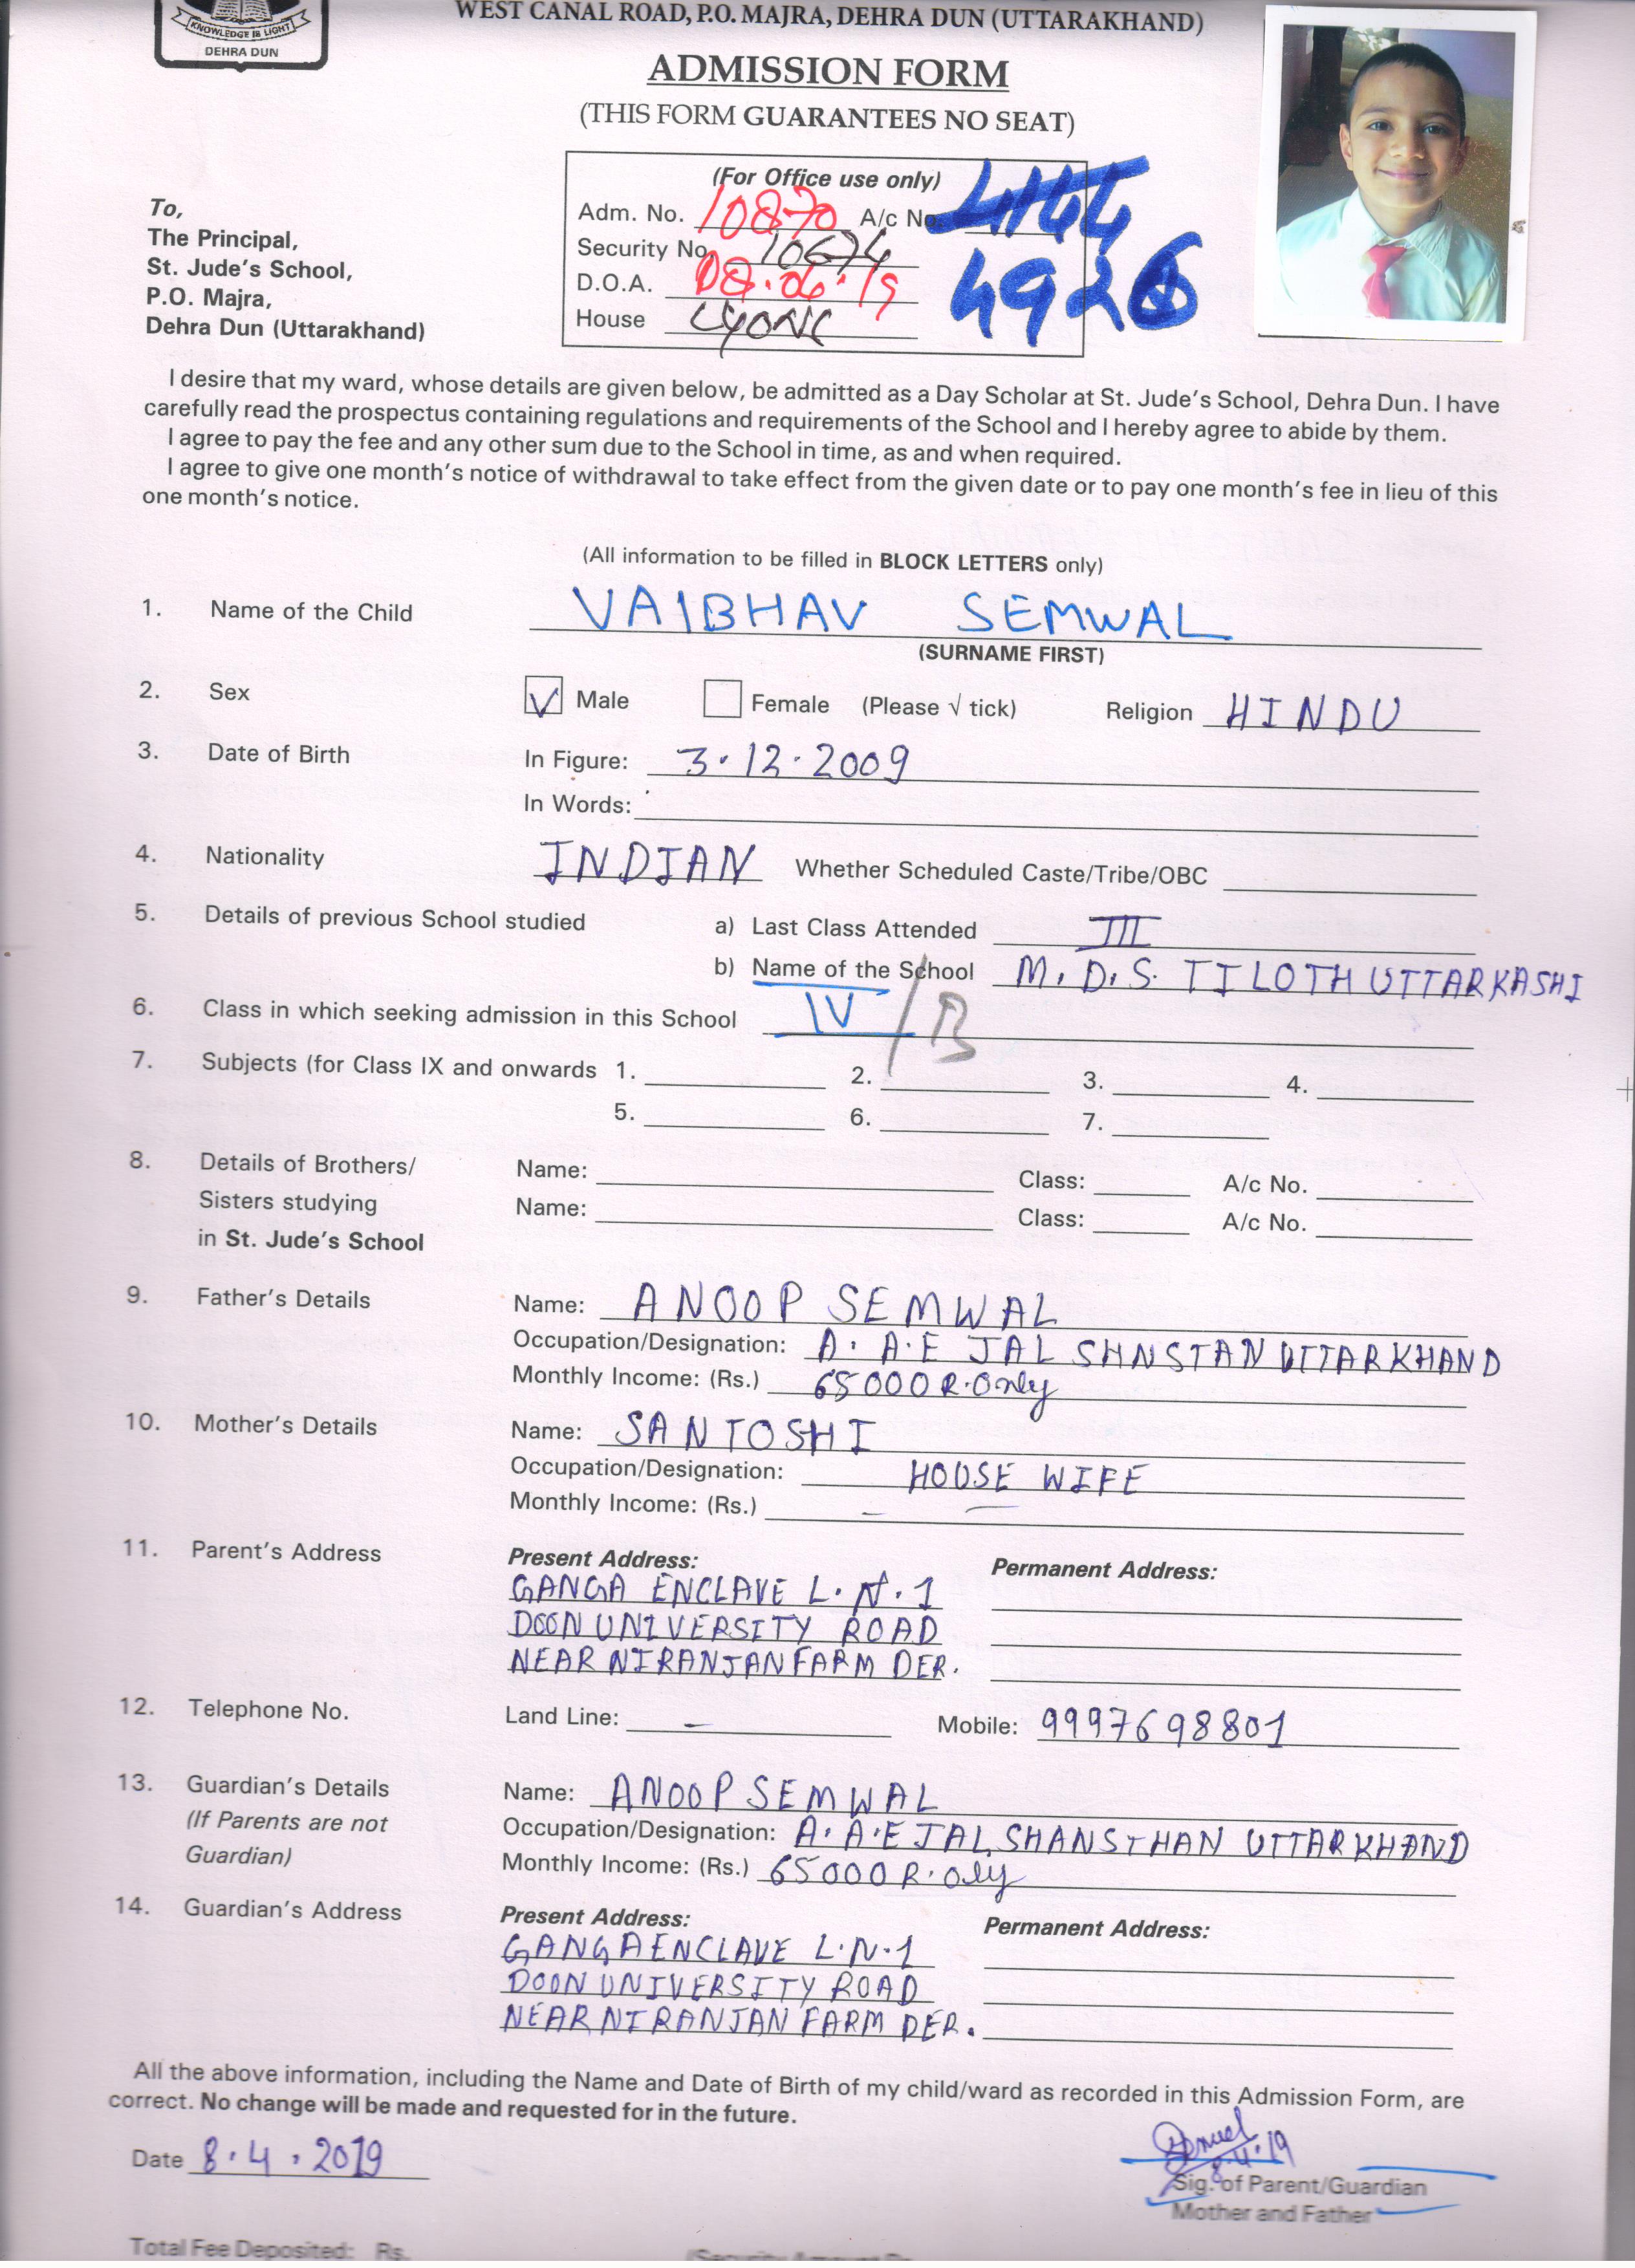 KNOWLEDGE IS LIGHT
DEHRA DUN
WEST CANAL ROAD, P.O. MAJRA, DEHRA DUN (UTTARAKHAND)
ADMISSION FORM
(THIS FORM GUARANTEES NO SEAT)
(For Office use only)
Adm. No. 10870 A/c No. 4144
Security No. 10674
4926
D.O.A. 08.04.19
House LYONS
To,
The Principal,
St. Jude's School,
P.O. Majra,
Dehra Dun (Uttarakhand)
I desire that my ward, whose details are given below, be admitted as a Day Scholar at St. Jude's School, Dehra Dun. I have
carefully read the prospectus containing regulations and requirements of the School and I hereby agree to abide by them.
I agree to pay the fee and any other sum due to the School in time, as and when required.
I agree to give one month's notice of withdrawal to take effect from the given date or to pay one month's fee in lieu of this
one month's notice.
(All information to be filled in BLOCK LETTERS only)
1. Name of the Child VAIBHAV SEMWAL
(SURNAME FIRST)
2. Sex V Male Female (Please √ tick) Religion HINDU
3. Date of Birth In Figure: 3.12.2009
In Words:
4. Nationality INDIAN Whether Scheduled Caste/Tribe/OBC
5. Details of previous School studied a) Last Class Attended III
b) Name of the School M.D.S. TILOTH UTTARKASHI
6. Class in which seeking admission in this School IV / B
7. Subjects (for Class IX and onwards 1. 2. 3. 4.
5. 6. 7.
8. Details of Brothers/ Name: Class: A/c No.
Sisters studying Name: Class: A/c No.
in St. Jude's School
9. Father's Details Name: ANOOP SEMWAL
Occupation/Designation: A.A.E JAL SHNSTAN UTTARKHAND
Monthly Income: (Rs.) 65000 R.Only
10. Mother's Details Name: SANTOSHI
Occupation/Designation: HOUSE WIFE
Monthly Income: (Rs.) – –
11. Parent's Address Present Address: Permanent Address:
GANGA ENCLAVE L.N.1
DOON UNIVERSITY ROAD
NEAR NIRANJAN FARM DER.
12. Telephone No. Land Line: – Mobile: 9997698801
13. Guardian's Details Name: ANOOP SEMWAL
(If Parents are not Occupation/Designation: A.A.E JAL SHANSTHAN UTTARKHAND
Guardian) Monthly Income: (Rs.) 65000 R.Only
14. Guardian's Address Present Address: Permanent Address:
GANGA ENCLAVE L.N.1
DOON UNIVERSITY ROAD
NEAR NIRANJAN FARM DER.
All the above information, including the Name and Date of Birth of my child/ward as recorded in this Admission Form, are
correct. No change will be made and requested for in the future.
Date 8.4.2019 8.4.19
Sig. of Parent/Guardian
Mother and Father
Total Fee Deposited: Rs.